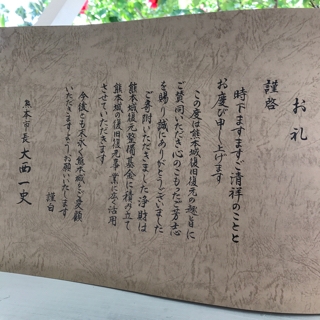 お礼
謹啓
時下ますますご清祥のことと
お慶び申し上げます
この度は熊本城復旧復元の趣旨に
ご賛同いただき心のこもったご芳志
を賜り誠にありがとうございました
ご寄附いただきました浄財は
熊本城復元整備基金に積み立て
熊本城の復旧復元事業に広く活用
させていただきます
今後とも末永く熊本城をご愛顧
いただきますようお願いいたします
謹白
熊本市長 大西一史